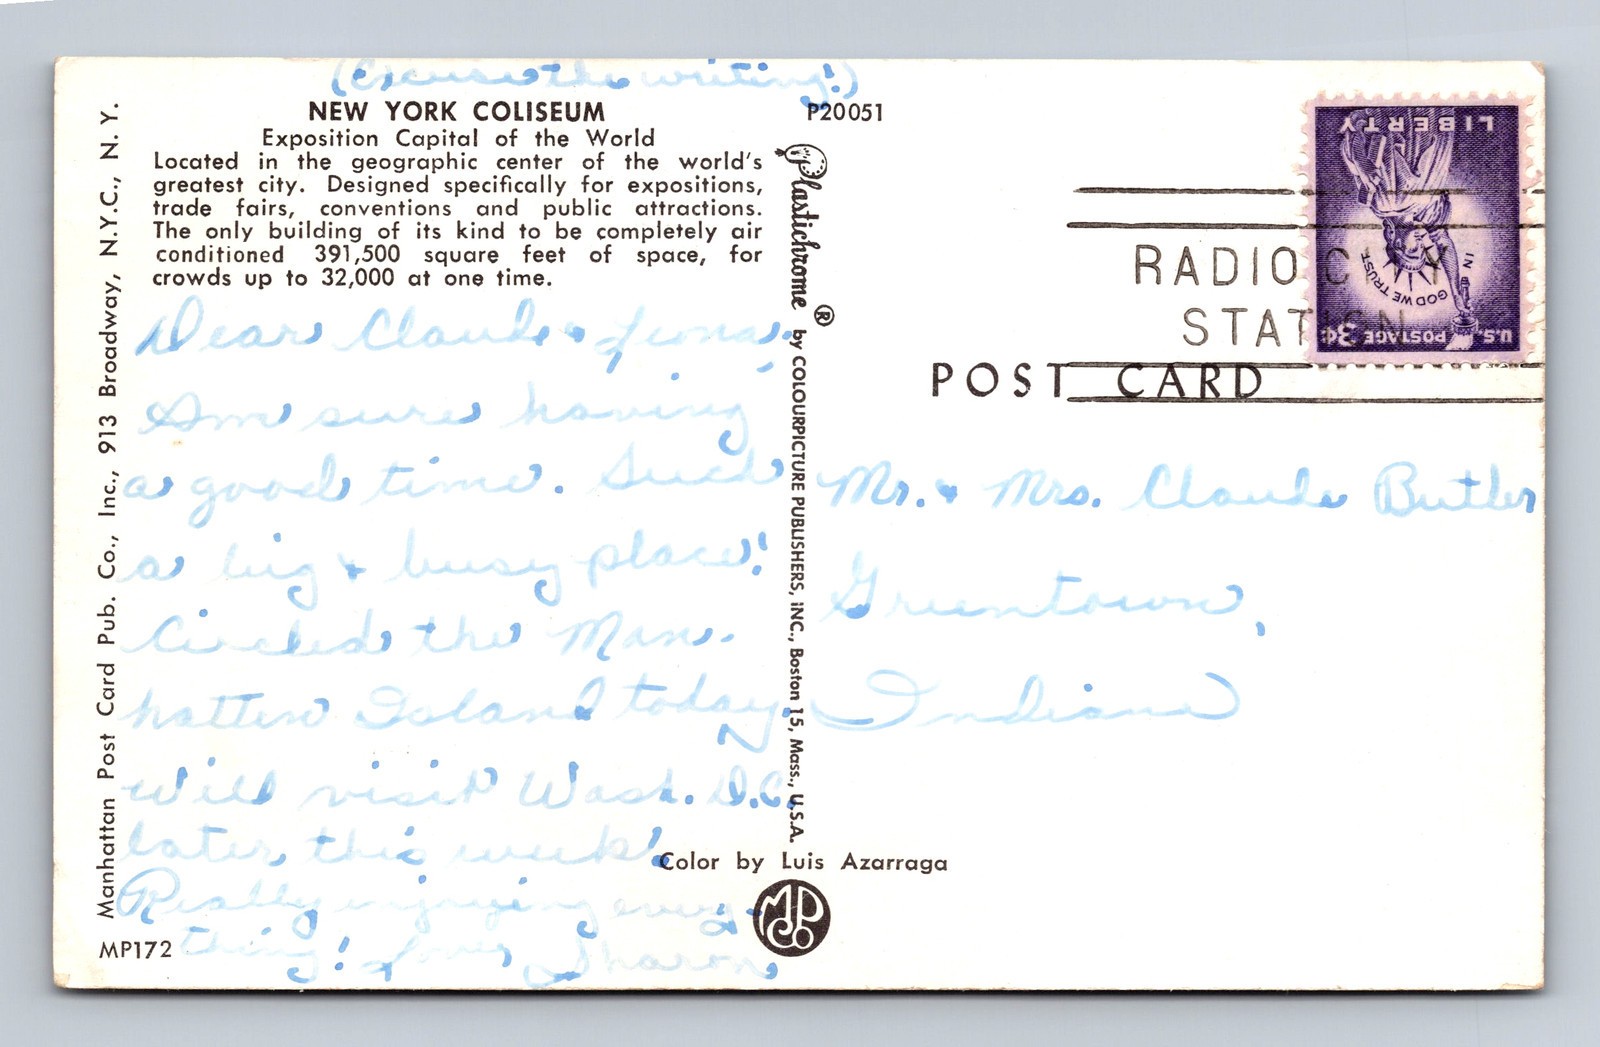 (Excuse the writing!)
NEW YORK COLISEUM
Exposition Capital of the World
Located in the geographic center of the world's
greatest city. Designed specifically for expositions,
trade fairs, conventions and public attractions.
The only building of its kind to be completely air
conditioned 391,500 square feet of space, for
crowds up to 32,000 at one time.
Dear Claude &
Am sure having
a good time. Such
a big & busy place!
Circled the Man-
hatten Island today.
Will visit Wash. D.C.
later this week!
Really enjoying every-
thing! Love, Sharon
Manhattan Post Card Pub. Co., Inc., 913 Broadway, N.Y.C., N. Y.
MP172
P20051
Plastichrome ® by COLOURPICTURE PUBLISHERS, INC., Boston 15, Mass., U.S.A.
Color by Luis Azarraga
MPCo
LIBERTY
IN GOD WE TRUST
U.S. POSTAGE 3¢
RADIO CITY
STATION
POST CARD
Mr. & Mrs. Claude Butler
Greentown,
Indiana